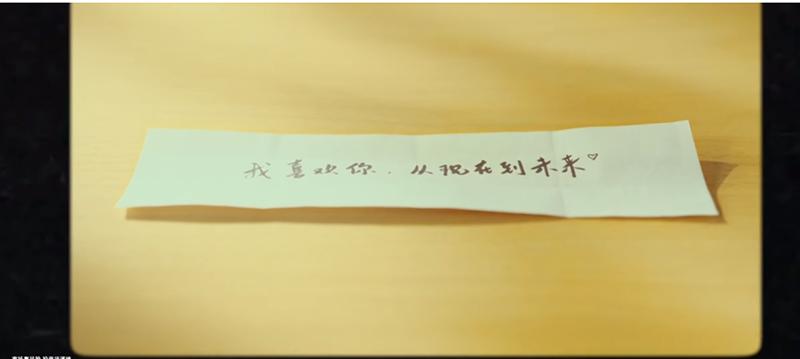 我喜欢你，从现在到未来♡